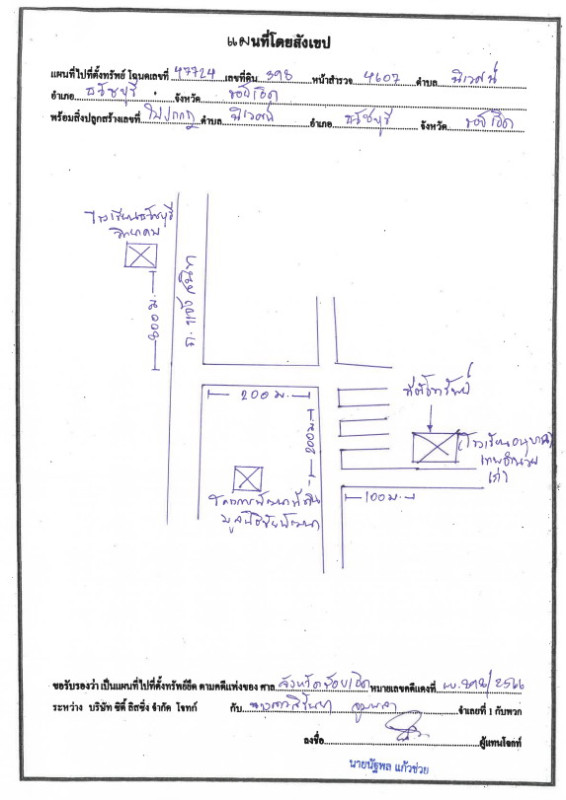 แผนที่โดยสังเขป
แผนที่ไปที่ตั้งทรัพย์ โฉนดเลขที่ 47724 เลขที่ดิน 398 หน้าสำรวจ 4607 ตำบล นิเวศน์
อำเภอ ธวัชบุรี จังหวัด ร้อยเอ็ด
พร้อมสิ่งปลูกสร้างเลขที่ ไม่ปรากฏ ตำบล นิเวศน์ อำเภอ ธวัชบุรี จังหวัด ร้อยเอ็ด
โรงเรียนธวัชบุรี
วิทยาคม
800 ม.
ถ.
200 ม.
200 ม.
ที่ตั้งทรัพย์
(โรงเรียนอนุบาล
เทพอำนวย
เก่า)
100 ม.
โครงการพัฒนาที่ดิน
มูลนิธิชัยพัฒนา
ขอรับรองว่า เป็นแผนที่ไปที่ตั้งทรัพย์ยึด ตามคดีแพ่งของ ศาล จังหวัดร้อยเอ็ด หมายเลขคดีแดงที่ /2566
ระหว่าง บริษัท ซิตี้ ลิสซิ่ง จำกัด โจทก์ กับ นางสาว จำเลยที่ 1 กับพวก
ลงชื่อ ผู้แทนโจทก์
นายนัฐพล แก้วช่วย